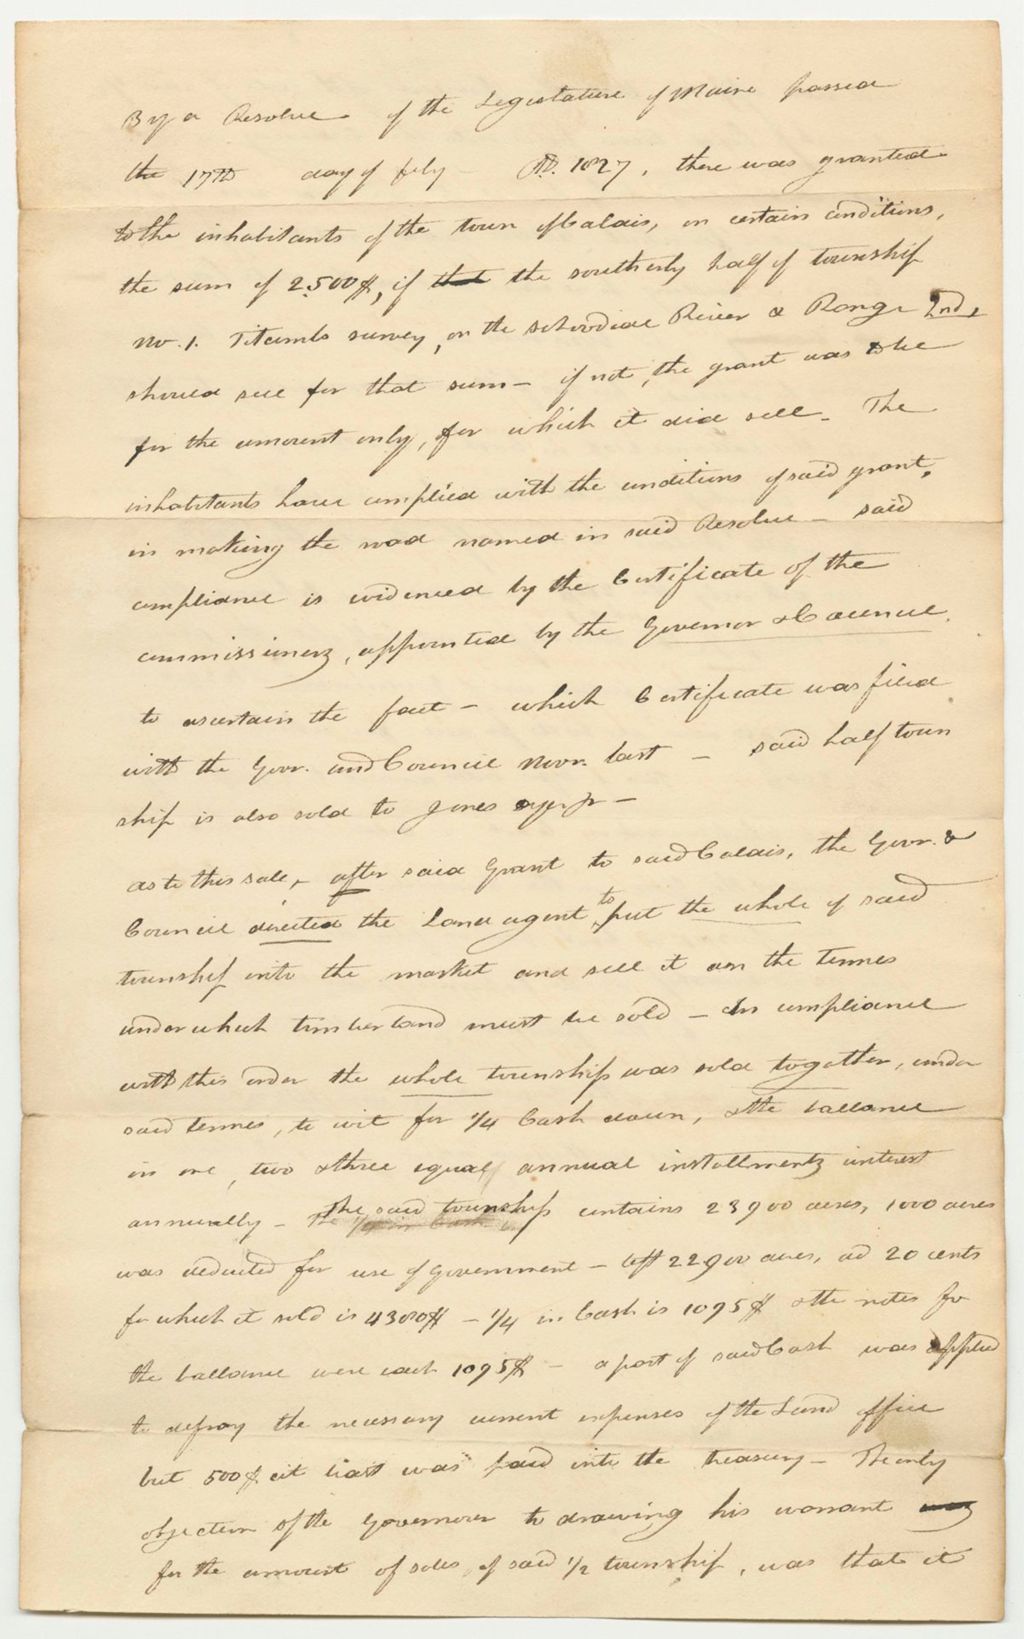 By a Resolve of the Legislature of Maine passed
the 17th day of feby AD. 1827, there was granted
to the inhabitants of the town of Calais, on certain conditions,
the sum of 2.500$, if that the southerly half of township
No. 1. Titcombs survey, on the schoodiac River & Range 2nd,
should sell for that sum - if not, the grant was to be
for the amount only, for which it did sell. The
inhabitants have complied with the conditions of said grant,
in making the road named in said Resolve - said
compliance is evidenced by the Certificate of the
commissionerz, appointed by the Governor & Councul.
to ascertain the fact - which Certificate was filed
with the Govr. and Council Novr. last - said half town
ship is also sold to Jones Jr -
as to this sale, - after said Grant to said Calais, the Govr. &
Council directed the Land agent to put the whole of said
township into the market and sell it on the termes
under which timber land must be sold - In compliance
with this order the whole township was sold together, under
said termes, to wit for 1/4 Cash down, & the ballance
in one, two & three equal annual installmentz interest
annually - The said township contains 23900 acres, 1000 acres
was deducted for use of government - left 22900 acres, ad 20 cents
for which it sold is 4380$ - 1/4 in Cash is 1095$ & the notes for
the ballance were each 1095$ - a part of said Cash was applied
to defray the necessary current expenses of the Land office
but 500$ at least was paid into the treasury - The only
objection of the Governour to drawing his warrant
for the amount of sales of said 1/2 township, was that it